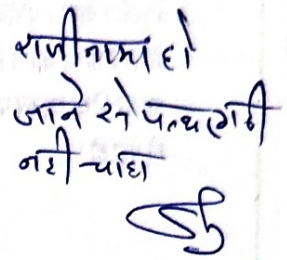 राजीनामां हो
जाने से पत्थरगढी
नही चाहा